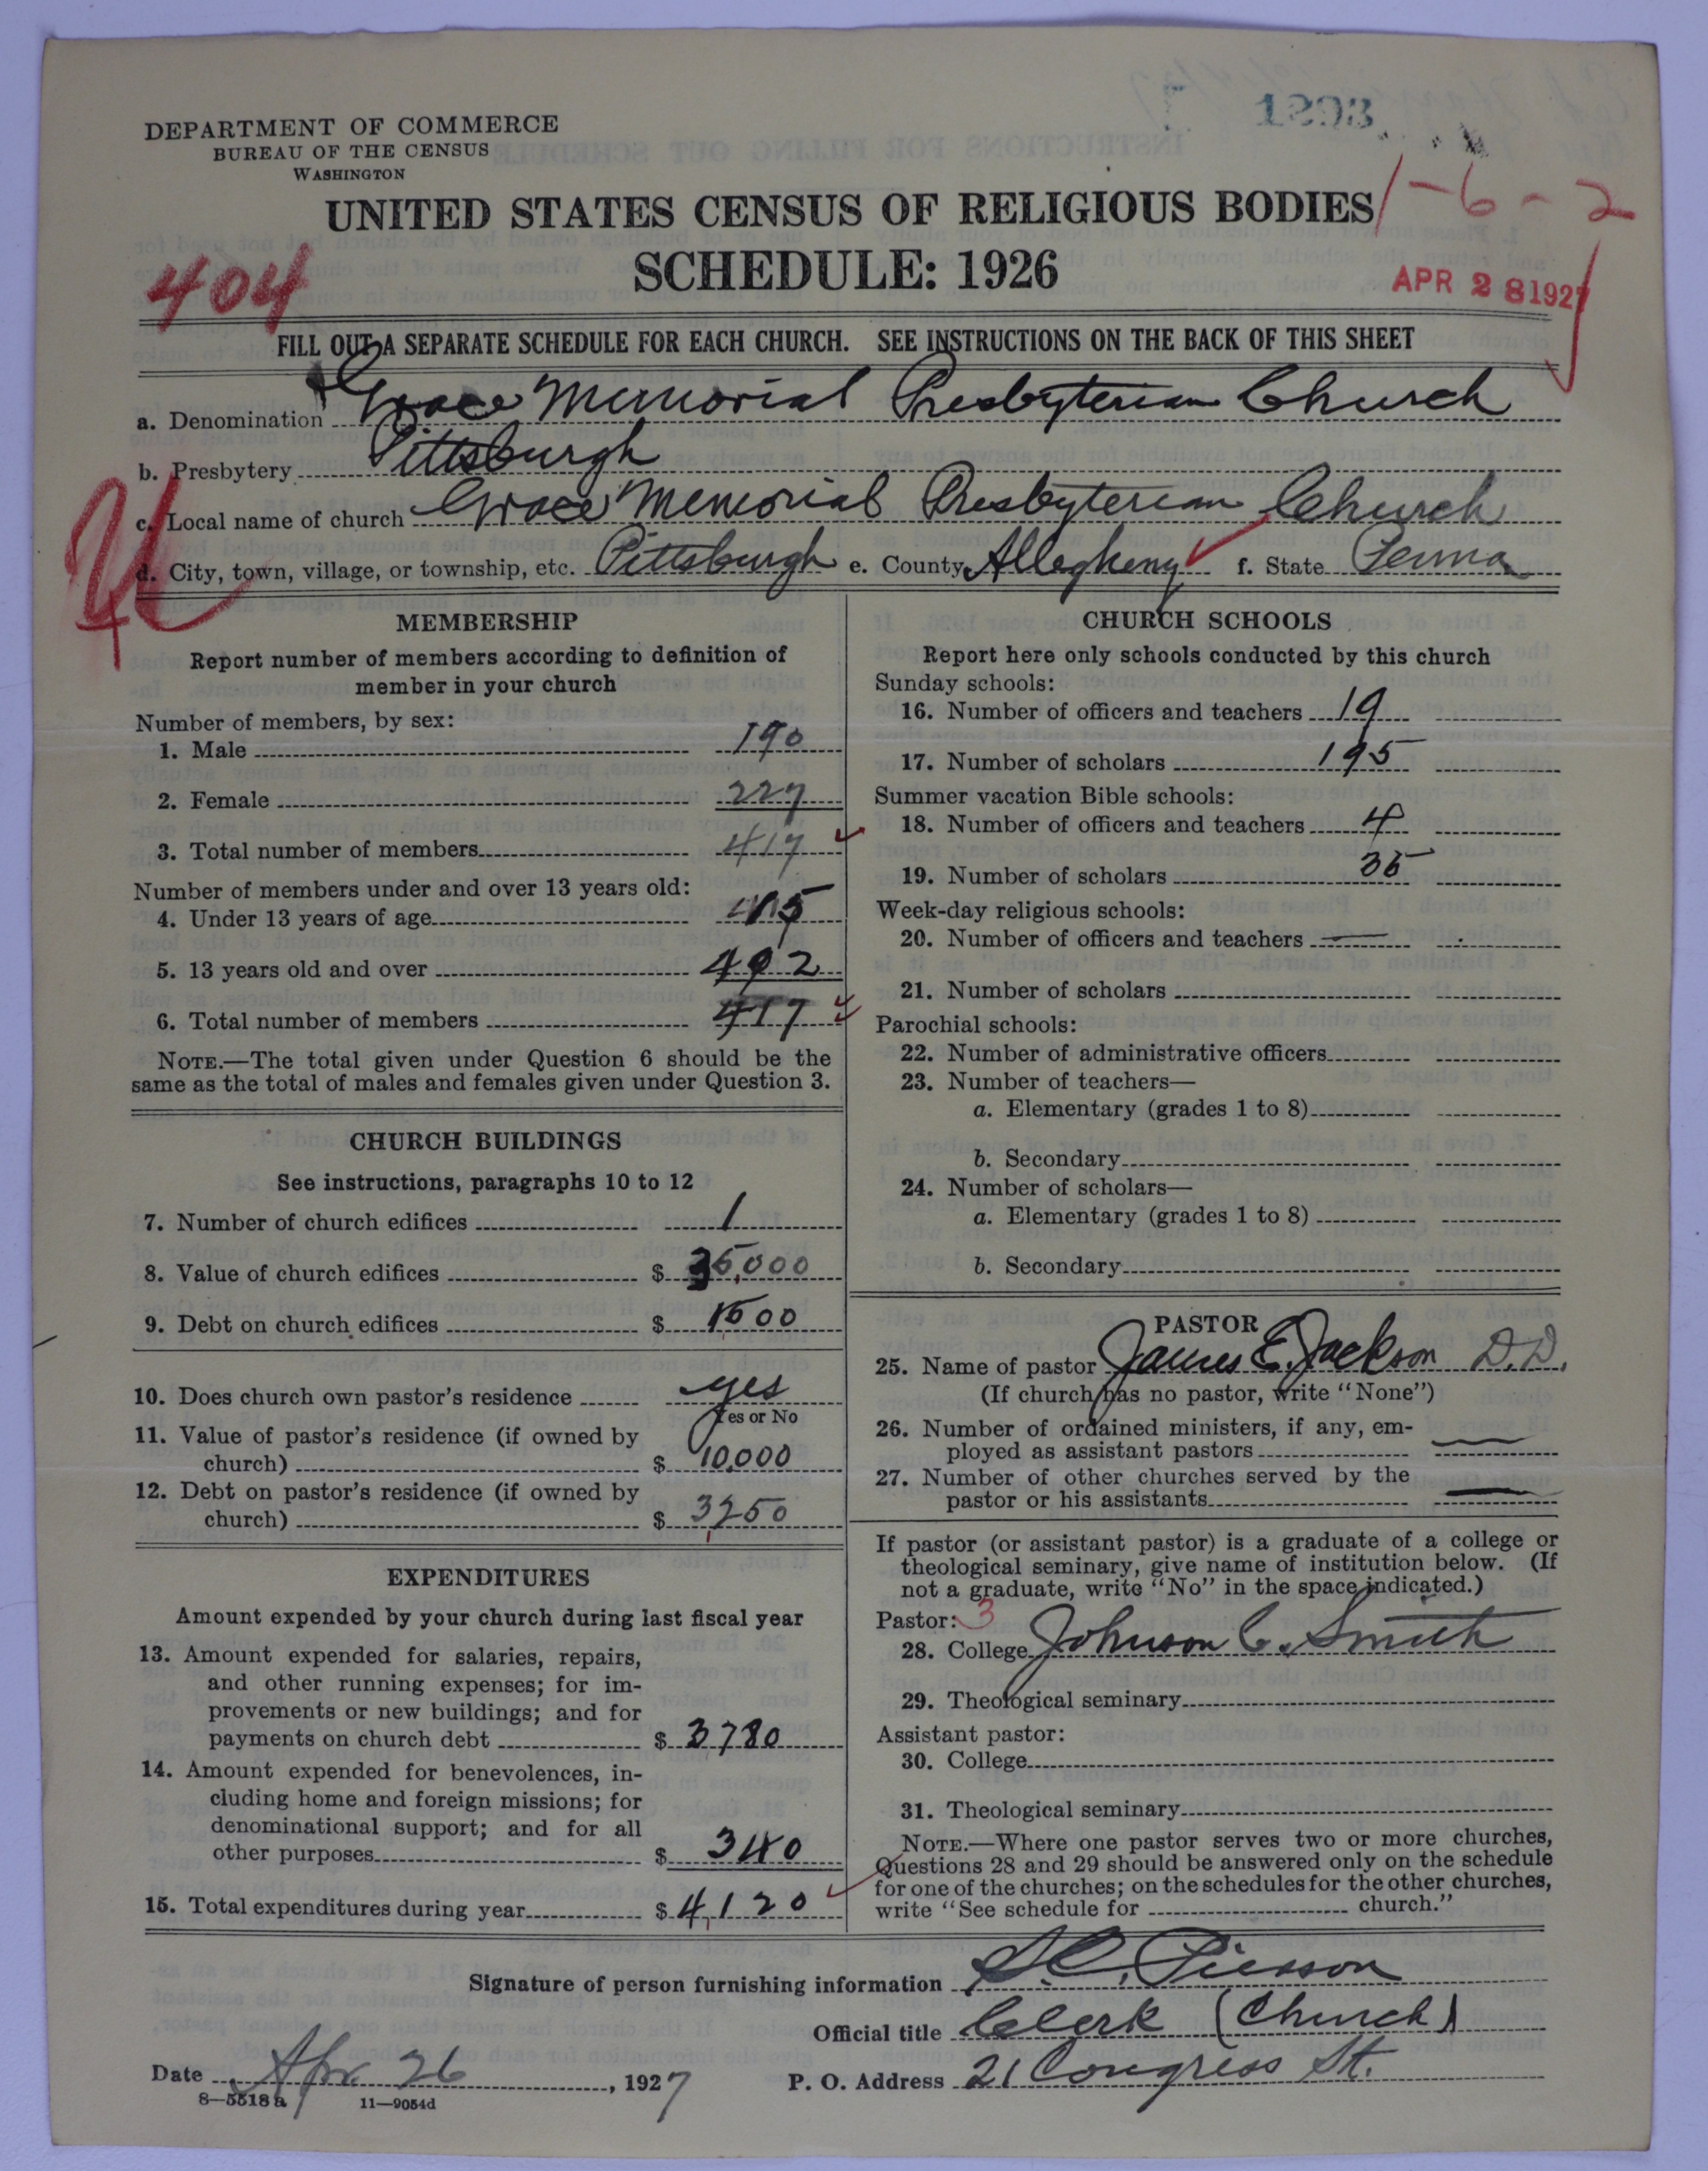 1293
DEPARTMENT OF COMMERCE
BUREAU OF THE CENSUS
WASHINGTON
UNITED STATES CENSUS OF RELIGIOUS BODIES
1-6-2
SCHEDULE: 1926
404
APR 28 1927
FILL OUT A SEPARATE SCHEDULE FOR EACH CHURCH. SEE INSTRUCTIONS ON THE BACK OF THIS SHEET
a. Denomination Grace Memorial Presbyterian Church
b. Presbytery Pittsburgh
c. Local name of church Grace Memorial Presbyterian Church
d. City, town, village, or township, etc. Pittsburgh e. County Allegheny f. State Penna
MEMBERSHIP
Report number of members according to definition of
member in your church
Number of members, by sex:
1. Male 190
2. Female 227
3. Total number of members 417
Number of members under and over 13 years old:
4. Under 13 years of age
5. 13 years old and over 402
6. Total number of members 417
NOTE.—The total given under Question 6 should be the
same as the total of males and females given under Question 3.
CHURCH BUILDINGS
See instructions, paragraphs 10 to 12
7. Number of church edifices 1
8. Value of church edifices $ 35,000
9. Debt on church edifices $ 1500
10. Does church own pastor's residence yes
Yes or No
11. Value of pastor's residence (if owned by
church) $ 10,000
12. Debt on pastor's residence (if owned by
church) $ 3250
EXPENDITURES
Amount expended by your church during last fiscal year
13. Amount expended for salaries, repairs,
and other running expenses; for im-
provements or new buildings; and for
payments on church debt $ 3780
14. Amount expended for benevolences, in-
cluding home and foreign missions; for
denominational support; and for all
other purposes $ 340
15. Total expenditures during year $ 4,120
CHURCH SCHOOLS
Report here only schools conducted by this church
Sunday schools:
16. Number of officers and teachers 19
17. Number of scholars 195
Summer vacation Bible schools:
18. Number of officers and teachers 4
19. Number of scholars 35
Week-day religious schools:
20. Number of officers and teachers —
21. Number of scholars
Parochial schools:
22. Number of administrative officers
23. Number of teachers—
a. Elementary (grades 1 to 8)
b. Secondary
24. Number of scholars—
a. Elementary (grades 1 to 8)
b. Secondary
PASTOR
25. Name of pastor James E. Jackson D.D.
(If church has no pastor, write "None")
26. Number of ordained ministers, if any, em-
ployed as assistant pastors —
27. Number of other churches served by the
pastor or his assistants —
If pastor (or assistant pastor) is a graduate of a college or
theological seminary, give name of institution below. (If
not a graduate, write "No" in the space indicated.)
Pastor: 3
28. College Johnson C. Smith
29. Theological seminary
Assistant pastor:
30. College
31. Theological seminary
NOTE.—Where one pastor serves two or more churches,
Questions 28 and 29 should be answered only on the schedule
for one of the churches; on the schedules for the other churches,
write "See schedule for church."
Signature of person furnishing information S.C. Pierson
Official title Clerk (Church)
Date Apr. 26, 1927 P. O. Address 21 Congress St.
8—5518 a 11—9054d